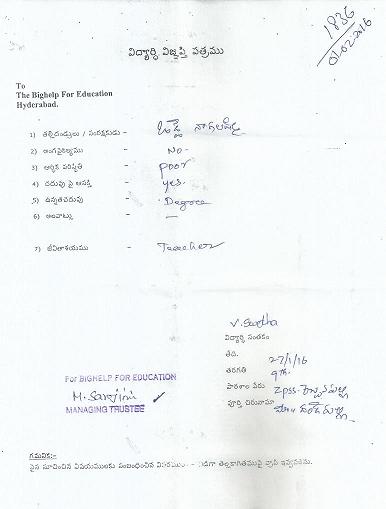 1836
01-02-2016
విద్యార్థి విజ్ఞప్తి పత్రము
To
The Bighelp For Education
Hyderabad.
1) తల్లిదండ్రులు / సంరక్షకుడు -
2) అంగవైకల్యము - No-
3) ఆర్థిక పరిస్థితి - poor
4) చదువు పై ఆసక్తి - yes.
5) ఉన్నతచదువు - Degree
6) అలవాట్లు - —
7) జీవితాశయము - Teacher
V. Swetha
విద్యార్థి సంతకం
తేది. 27/1/16
తరగతి 9th
పాఠశాల పేరు ZPSS.
పూర్తి చిరునామా
For BIGHELP FOR EDUCATION
M. Sarojini
MANAGING TRUSTEE
గమనిక:-
పైన సూచించిన విషయములకు సంబంధించిన తెల్లకాగితముపై వ్రాసి ఇవ్వవలెను.